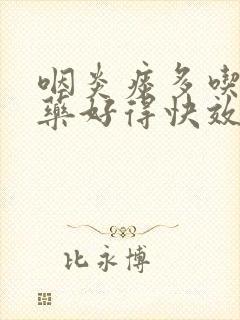 咽炎痰多喫
藥好得快效
比永博